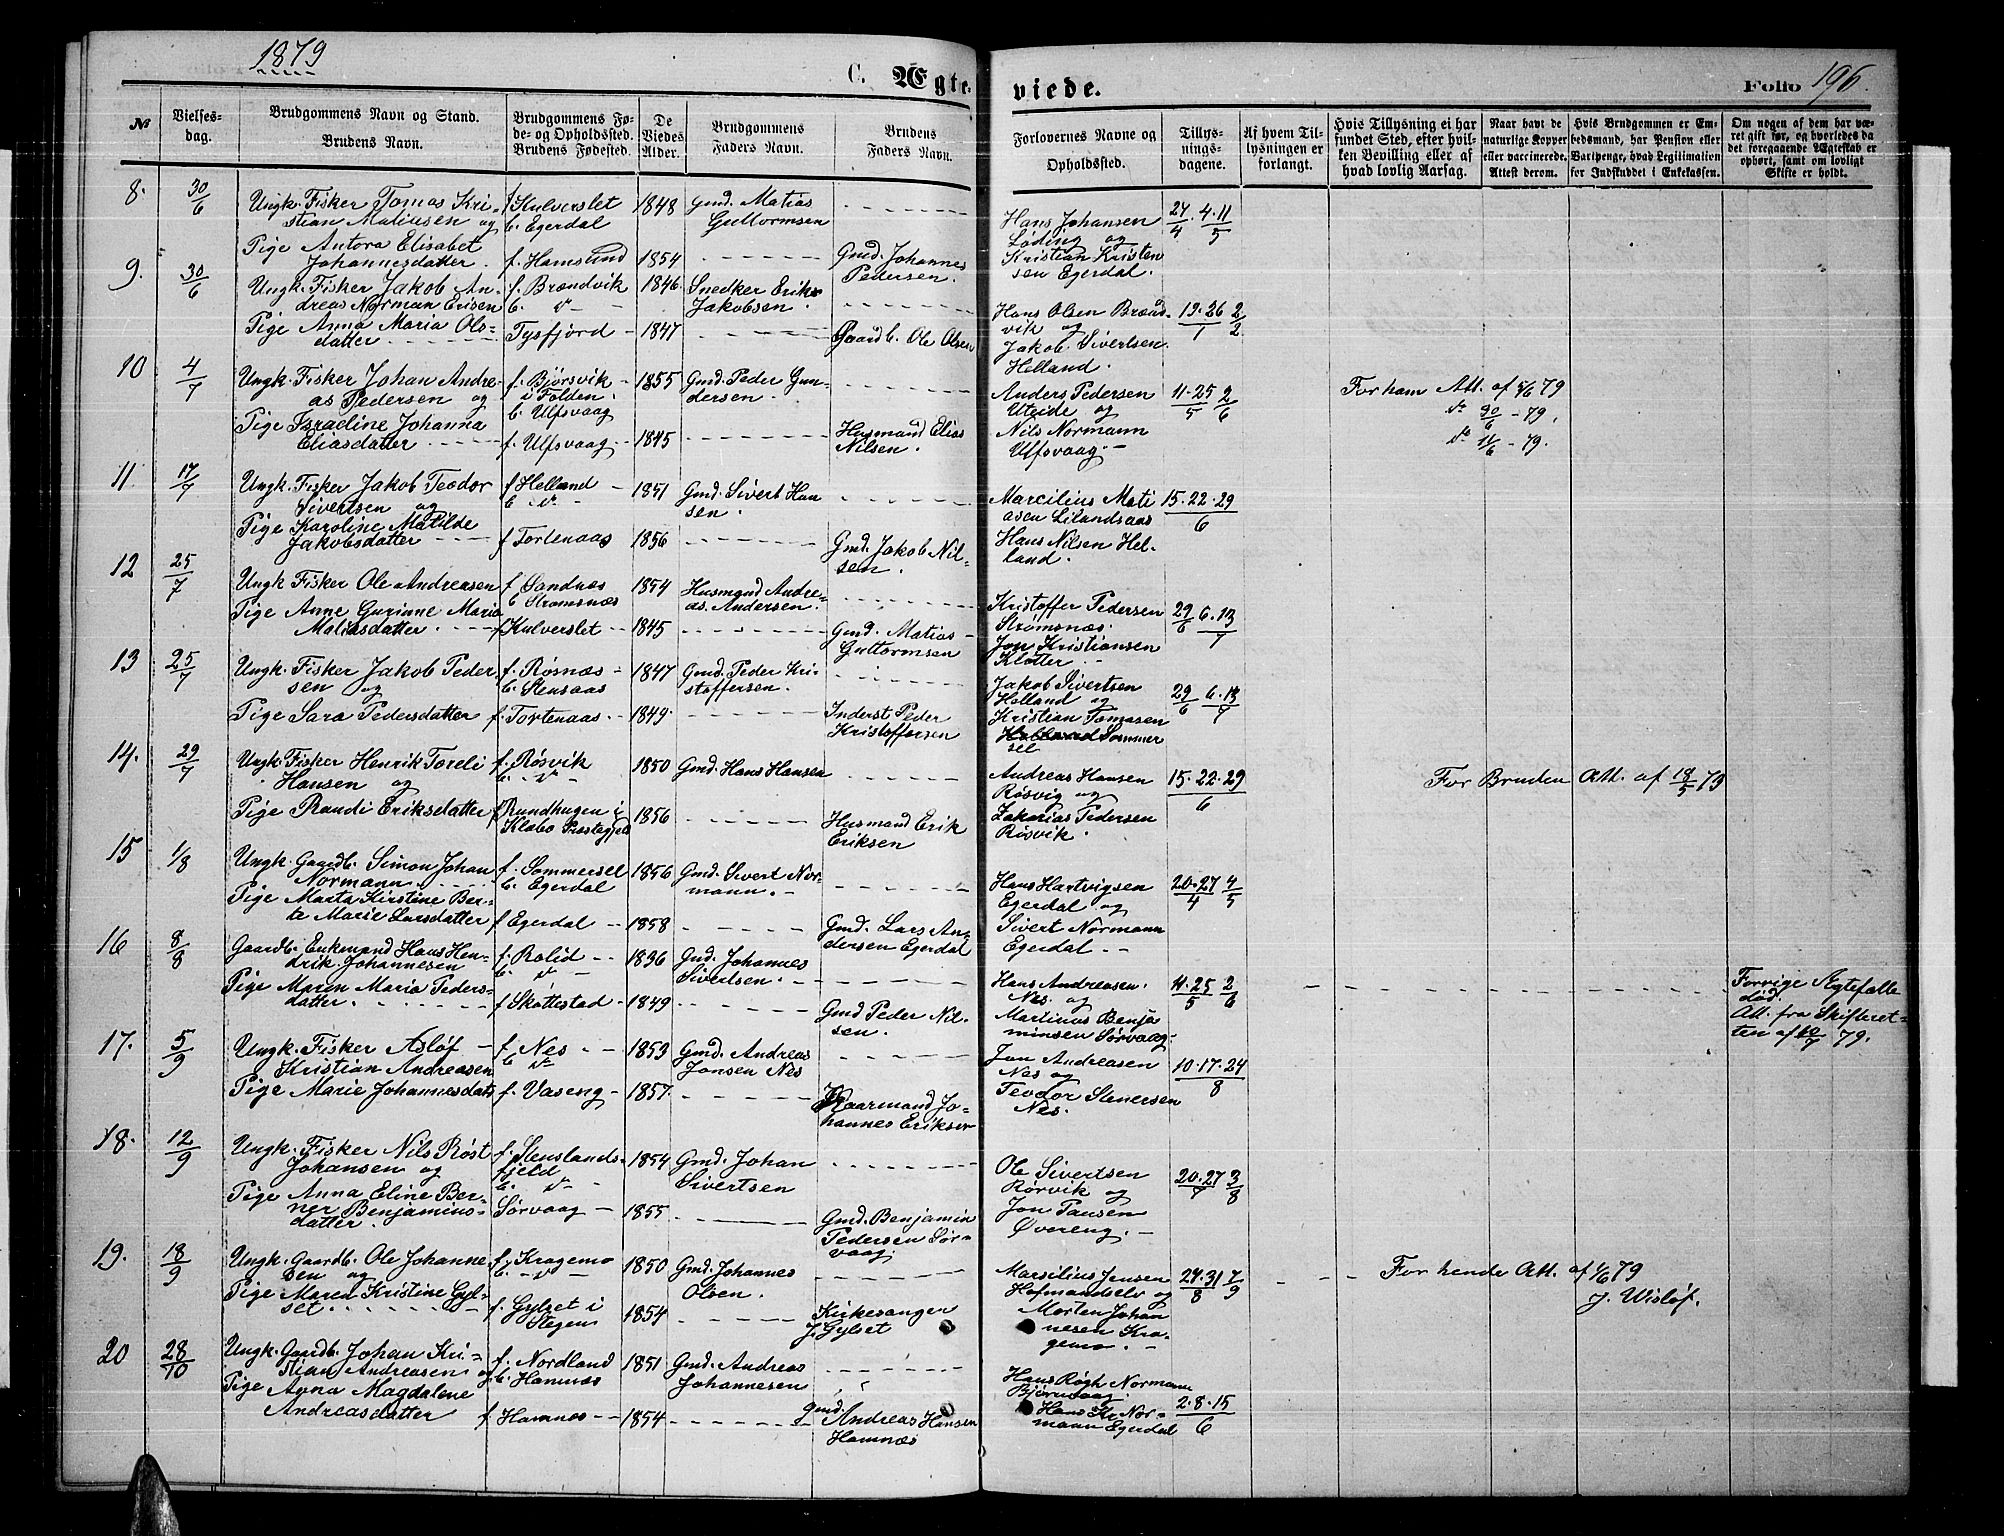 1879
C. Ægte-
viede.
Folio 196.
№
Vielses-
dag.
Brudgommens Navn og Stand.
Brudens Navn.
Brudgommens Fø-
de- og Opholdssted.
Brudens Fødested.
De
Viedes
Alder.
Brudgommens
Faders Navn.
Brudens
Faders Navn.
Forlovernes Navne og
Opholdssted.
Tillys-
nings-
dagene.
Af hvem Til-
lysningen er
forlangt.
Hvis Tillysning ei har
fundet Sted, efter hvil-
ken Bevilling eller af
hvad lovlig Aarsag.
Naar havt de
naturlige Kopper
eller vaccinerede.
Attest derom.
Hvis Brudgommen er Em-
bedsmand, har Pension eller
Vartpenge, hvad Legitimation
for Indskuddet i Enkekassen.
Om nogen af dem har væ-
ret gift før, og hvorledes da
det foregaaende Ægteskab er
ophørt, samt om lovligt
Skifte er holdt.
8. 30/6
Ungk. Fisker Tomas Kri-
stian Matiasen og
Pige Antora Elisabet
Johannesdatter.
f. Kulverslet
b. Egerdal
f. Hamsund
1848
1854
Gmd. Matias
Guttormsen
Gmd. Johannes
Pedersen.
Hans Johansen
Løding og
Kristian Kristen
sen Egerdal.
27/4 4.11/5
9. 30/6
Ungk. Fisker Jakob An-
dreas Norman Erisen
Pige Anna Maria Ols-
datter
f. Brændvik
b. do
Tysfjord
1846
1847
Snedker Erik
Jakobsen.
Gaardb. Ole Olsen
Hans Olsen Brænd-
vik og
Jakob Sivertsen
Helland.
19.26/1 2/2
10 4/7
Ungk. Fisker Johan Andre-
as Pedersen og
Pige Israeline Johanna
Eliasdatter
f. Bjørsvik
i Folden.
b. Ulfsvaag
f. Ulfsvaag
1855
1845
Gmd. Peder Gun-
dersen.
Husmand Elias
Nilsen.
Anders Pedersen
Uteide og
Nils Normann
Ulfsvaag.
11.25/5 2/6
For ham Att. af 5/6 79
do 30/6 - 79.
do 11/6 - 79.
11. 17/7
Ungk. Fisker Jakob Teodor
Sivertsen og
Pige Karoline Matilde
Jakobsdatter
f. Helland
b. do
f. Tortenaas
1851
1856
Gmd. Sivert Han
sen.
Gmd. Jakob Nil-
sen.
Marcilius Mati
asen Lilandsaas
Hans Nilsen Hel-
land.
15.22.29/6
12 25/7
Ungk. Fisker Ole Andreasen
Pige Anne Gurinne Maria
Matiasdatter.
f. Sandnæs
b. Strømsnæs
f. Kulverslet
1854
1845
Husmand Andre-
as Andersen.
Gmd. Matias
Guttormsen
Kristoffer Pedersen
Strømsnæs.
Jon Kristiansen
Kløtter.
29/6 6.13/7
13 25/7
Ungk. Fisker Jakob Peder
sen og
Pige Sara Pedersdatter
f. Røsnæs
b. Stensaas
f. Tortenaas.
1847
1849
Gmd. Peder Kri-
stoffersen.
Inderst Peder
Kristoffersen
Jakob Sivertsen
Helland og
Kristian Tomasen
Helland Sommer
sel
29/6 6.13/7
14. 29/7
Ungk. Fisker Henrik Toreli
Hansen og
Pige Randi Eriksdatter
f. Røsvik
b. do
f. Rundhugen i
Klæbo Præstegjeld
1850
1856
Gmd. Hans Hansen
Husmand Erik
Eriksen
Andreas Hansen
Røsvig og
Zakarias Pedersen
Røsvik.
15.22.29/6
For Bruden Att. af 18/5 79
15 1/8
Ungk. Gaardb. Simon Johan
Normann
Pige Marta Kirstine Ber-
te Marie Larsdatter
f. Sommersel
b. Egerdal
f. Egerdal
1856
1858
Gmd. Sivert Nor-
mann.
Gmd. Lars An-
dersen Egerdal
Hans Hartvigsen
Egerdal og
Sivert Normann
Egerdal
20.27/4 4/5
16 8/8
Gaardb. Enkemand Hans Hen-
drik Johannesen
Pige Maren Maria Peders-
datter.
f. Rolid
b. do
f. Skottestad
1836
1849
Gmd. Johannes
Sivertsen.
Gmd Peder Nil-
sen.
Hans Andreasen
Nes og
Martinus Benja
minsen Sørvaag.
11.25/5 2/6
Forrige Ægtefælle
død.
Att. fra Skifteret-
ten af 10/7 79.
17. 5/9
Ungk. Fisker Asløf
Kristian Andreasen
Pige Marie Johannesdatt
f. Nes
b. do
f. Vaseng
1853
1857.
Gmd. Andreas
Jonsen Nes
Kaarmand Jo-
hannes Eriksen
Jon Andreasen
Nes og
Teodor Stenersen
Nes.
10.17.24/8
18. 12/9
Ungk. Fisker Nils Røst
Johansen og
Pige Anna Eline Ber-
ner Benjamins-
datter.
f. Stenslands-
fjeld
b. do
Sørvaag
1854
1855
Gmd. Johan
Sivertsen
Gmd. Benjamin
Pedersen Sør-
vaag.
Ole Sivertsen
Rørvik og
Jon Paulsen
Øvereng.
20.27/7 3/8
19. 18/9
Ungk. Gaardb. Ole Johanne
sen og
Pige Maren Kristine Gyl-
set.
f. Kragemo
b. do
f. Gylset i
Stegen
1850
1854
Gmd. Johannes
Olsen.
Kirkesanger
J. Gylset
Marsilius Jensen
Hofmandselv og
Morten Johan
nesen Kra-
gemo.
24.31/8 7/9
For hende Att. af 1/6 79
J. Wisløf.
20 28/10
Ungk. Gaardb. Johan Kri-
stian Andreasen og
Pige Anna Magdalene
Andreasdatter
f. Nordland
b. Hamnæs
f. Hamnæs
1851
1854
Gmd. Andreas
Johannesen
Gmd. Andreas Hansen
Hamnæs
Hans Røgh Normann
Bjørnvaag.
Hans Kr. Nor-
mann Egerdal
2.8.15/6